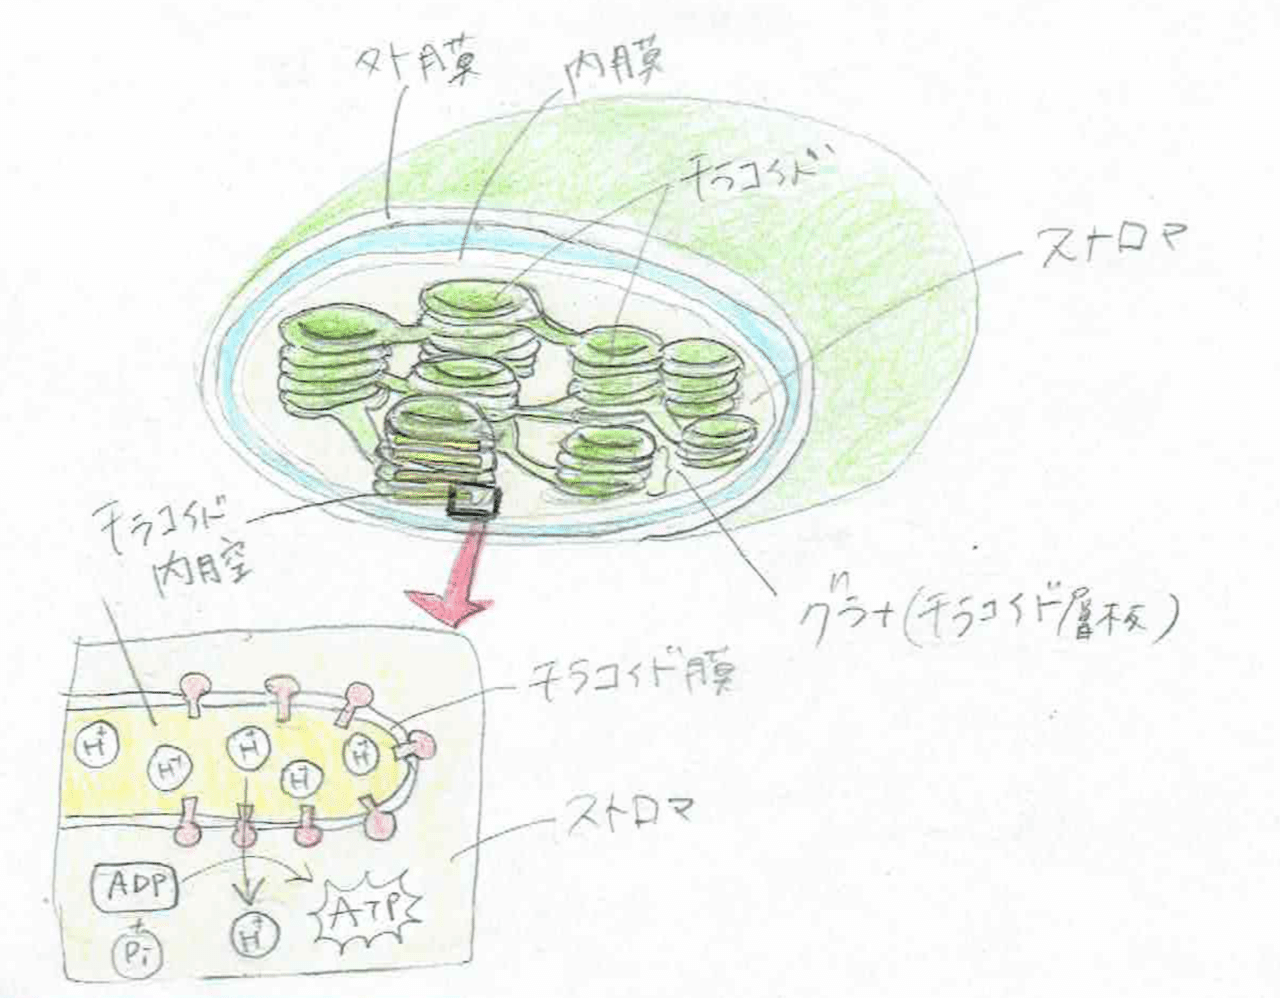 外膜
内膜
チラコイド
ストロマ
チラコイド
内腔
グラナ(チラコイド層板)
チラコイド膜
H⁺
H⁺
H⁺
H⁺
H⁺
ストロマ
ADP
+
Pi
H⁺
ATP